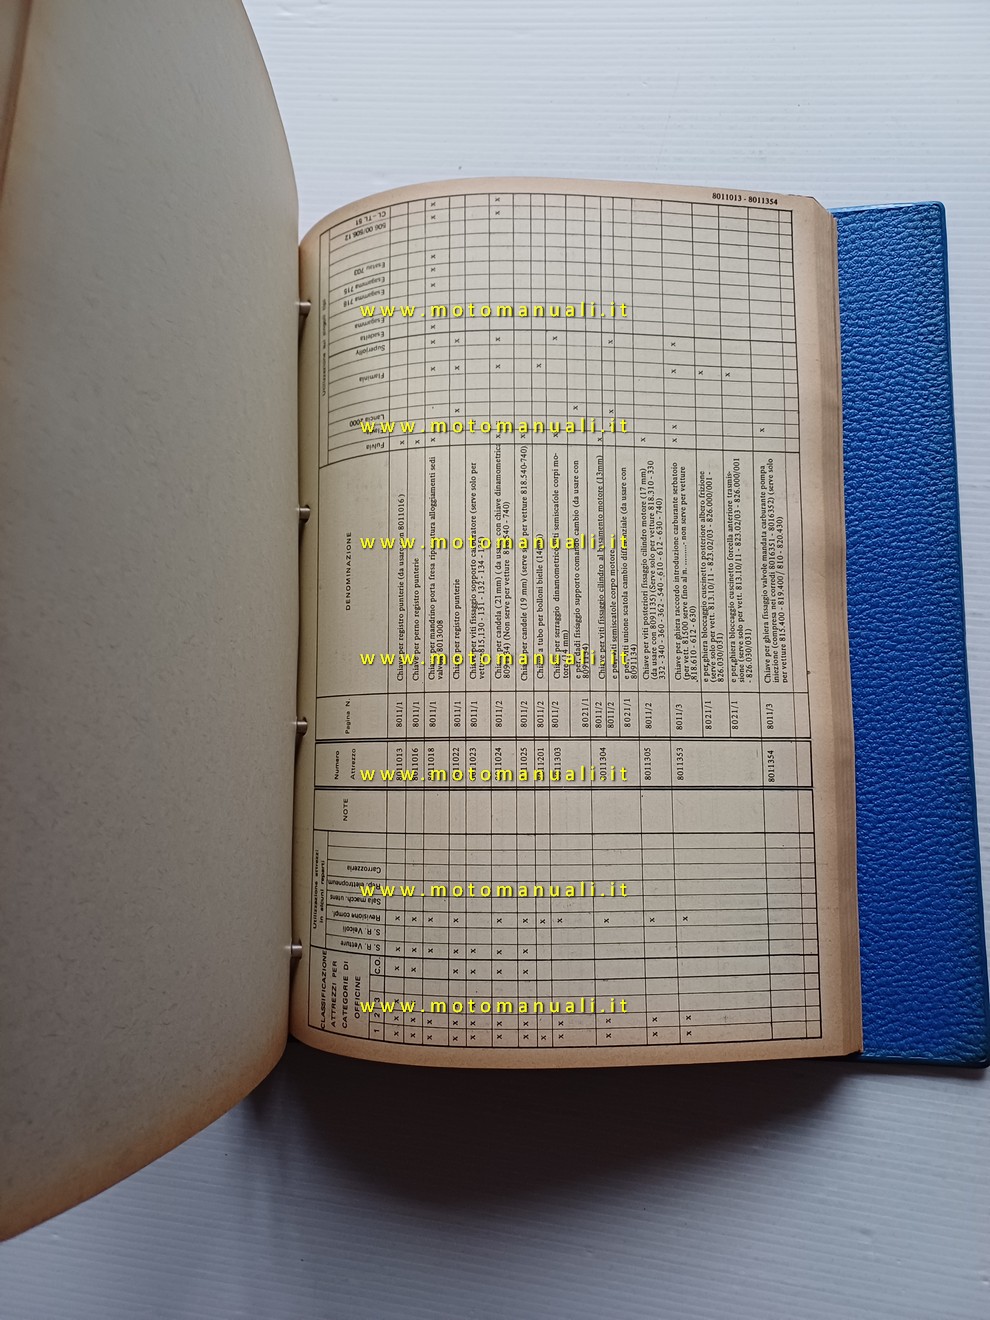 8011013 - 8011354
CLASSIFICAZIONE
ATTREZZI PER
CATEGORIE DI
OFFICINE
1 2 3 C.O.
Utilizzazione attrezzi
in alcuni reparti
S. R. Vetture
S. R. Veicoli
Revisione compl.
Sala macch. utens.
Rep. elettropneum.
Carrozzeria
NOTE
Numaro
Attrezzo
Pagina N.
DENOMINAZIONE
Fulvia
Lancia 2000
Flaminia
Superjolly
Esadelta
Esagamma
Esagamma 718
Esagamma 715
Esatau 703
506.00/506.12
CL - TL 51
8011013 8011/1 Chiave per registro punterie (da usare con 8011016)
8011016 8011/1 Chiave per perno registro punterie
8011018 8011/1 Chiave per mandrino porta fresa ripassatura alloggiamenti sedi
valvole 8013008
8011022 8011/1 Chiave per registro punterie
8011023 8011/1 Chiave per viti fissaggio supporto carburatore (serve solo per
vetture 815.130 - 131 - 132 - 134 -
8011024 8011/2 Chiave per candela (21 mm) (da usare con chiave dinamometrica
8091134) (Non serve per vetture 818.540 - 740)
8011025 8011/2 Chiave per candele (19 mm) (serve solo per vetture 818.540-740)
8011201 8011/2 Chiave a tubo per bolloni bielle (14 mm)
8011303 8011/2 Chiave per serraggio dinamometrico dadi semiscatole corpi mo-
tore (14 mm)
8021/1 e per dadi fissaggio supporto comando cambio (da usare con
8091134)
8011304 8011/2 Chiave per viti fissaggio cilindro al basamento motore (13mm)
8011/2 e per dadi semiscatole corpo motore
8021/1 e per dadi unione scatola cambio differenziale (da usare con
8091134)
8011305 8011/2 Chiave per viti posteriori fissaggio cilindro motore (17 mm)
(da usare con 8091135) (Serve solo per vetture 818.310 - 330
332 - 340 - 360 - 362 - 540 - 610 - 612 - 630 - 740)
8011353 8011/3 Chiave per ghiera raccordo introduzione carburante serbatoio
(per vett. 81500 serve fino al m.......... - non serve per vetture
818.610 - 612 - 630)
8021/1 e per ghiera bloccaggio cuscinetto posteriore albero frizione
(serve solo per vett. 813.10/11 - 823.02/03 - 826.000/001 -
826.030/031)
8021/1 e per ghiera bloccaggio cuscinetto forcella anteriore trasmis-
sione (serve solo per vett. 813.10/11 - 823.02/03 - 826.000/001
- 826.030/031)
8011354 8011/3 Chiave per ghiera fissaggio valvole mandata carburante pompa
iniezione (compresa nei corredi 8016351 - 8016352) (serve solo
per vetture 815.400 - 819.400 / 810 - 820.430)
www.motomanuali.it
www.motomanuali.it
www.motomanuali.it
www.motomanuali.it
www.motomanuali.it
www.motomanuali.it
www.motomanuali.it